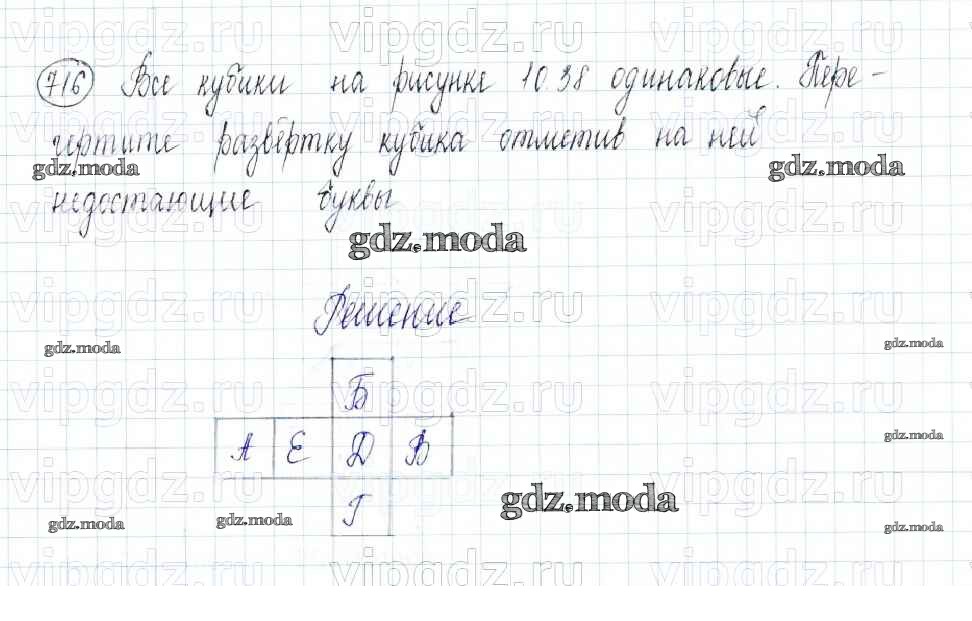 vipgdz.ru vipgdz.ru vipgdz.ru
716 Все кубики на рисунке 10.38 одинаковые. Пере-
чертите развёртку кубика отметив на ней
gdz.moda gdz.moda
недостающие буквы
vipgdz.ru vipgdz.ru vipgdz.ru
gdz.moda
vipgdz.ru vipgdz.ru vipgdz.ru
Решение
gdz.moda gdz.moda
Б
vipgdz.ru vipgdz.ru vipgdz.ru
А Е Д В
gdz.moda
vipgdz.ru vipgdz.ru vipgdz.ru
gdz.moda
Г
gdz.moda gdz.moda gdz.moda
vipgdz.ru vipgdz.ru vipgdz.ru